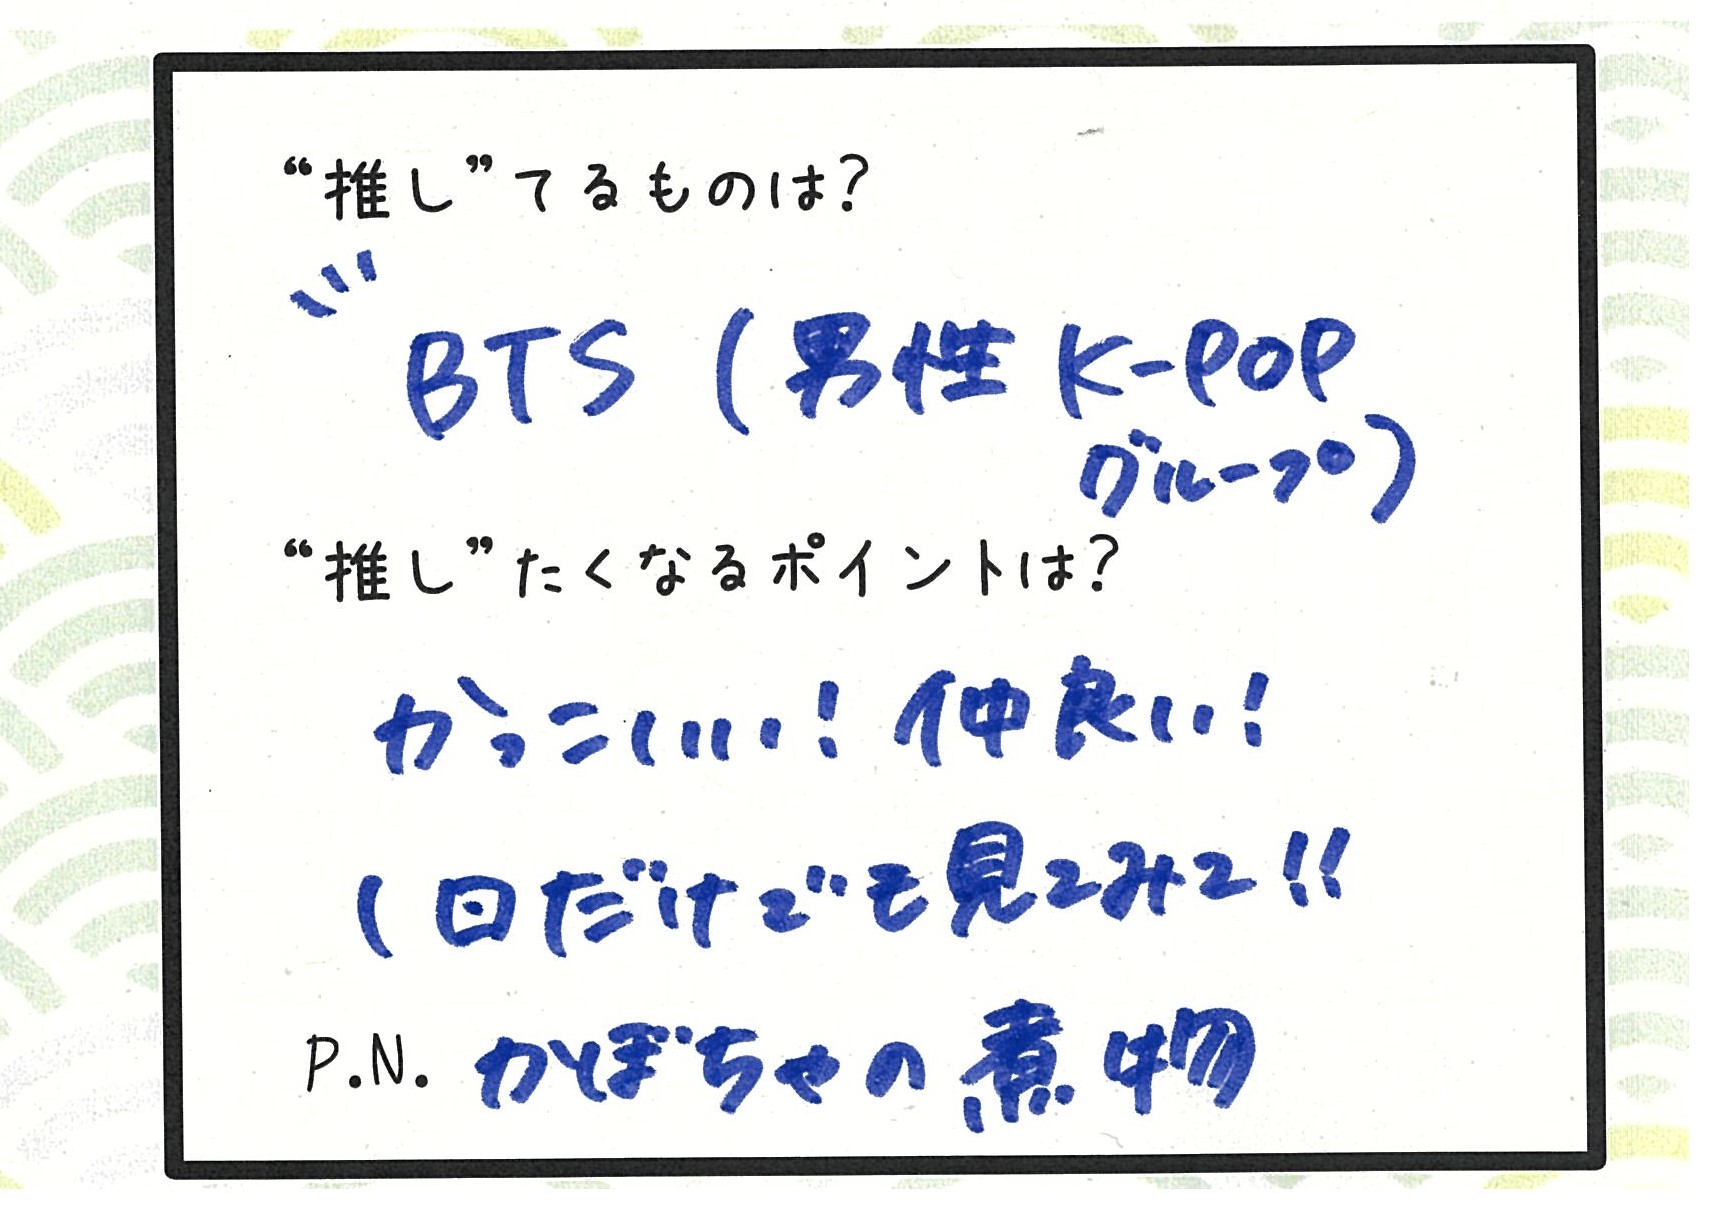 “推し”てるものは?
BTS (男性K-POP
グループ)
“推し”たくなるポイントは?
かっこいい!仲良い!
1日だけでも見てみて!!
P.N. かぼちゃの煮物